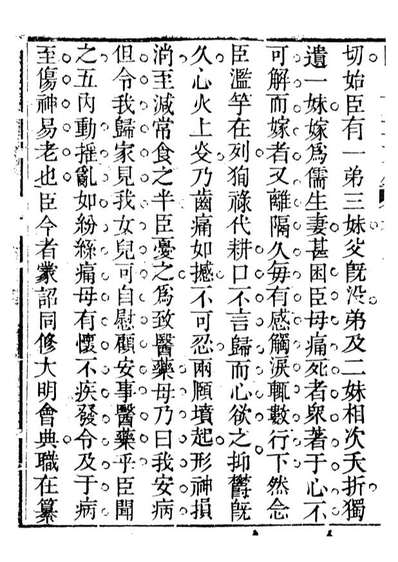 切始臣有一弟三妹父旣沒弟及二妹相次夭折獨
遺一妹嫁爲儒生妻甚困臣母痛死者衆著于心不
可解而嫁者又離隔久每有感觸淚輒數行下然念
臣濫竽在列狥祿代耕口不言歸而心欲之抑鬱旣
久心火上炎乃齒痛如撼不可忍兩頤墳起形神損
消至減常食之半臣憂之爲致醫藥母乃曰我安病
但令我歸家見我女兒可自慰顧安事醫藥乎臣聞
之五內動搖亂如紛絲痛母有懷不疾發令及于病
至傷神易老也臣今者蒙詔同修大明會典職在纂